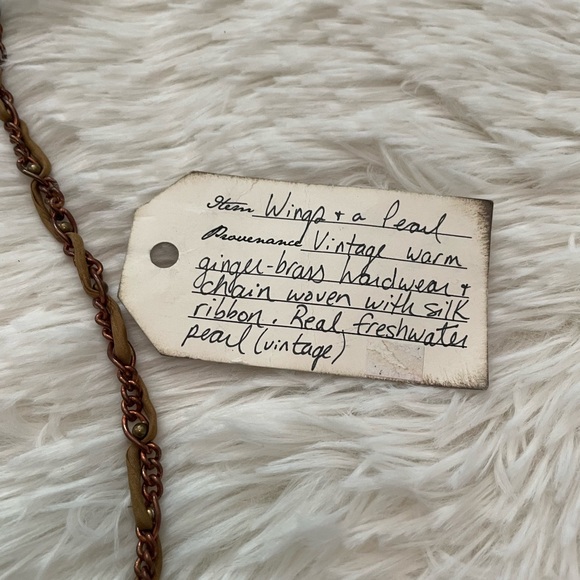 Item Wings + a Pearl
Provenance Vintage warm
ginger-brass hardwear +
chain woven with silk
ribbon. Real freshwater
pearl (vintage)